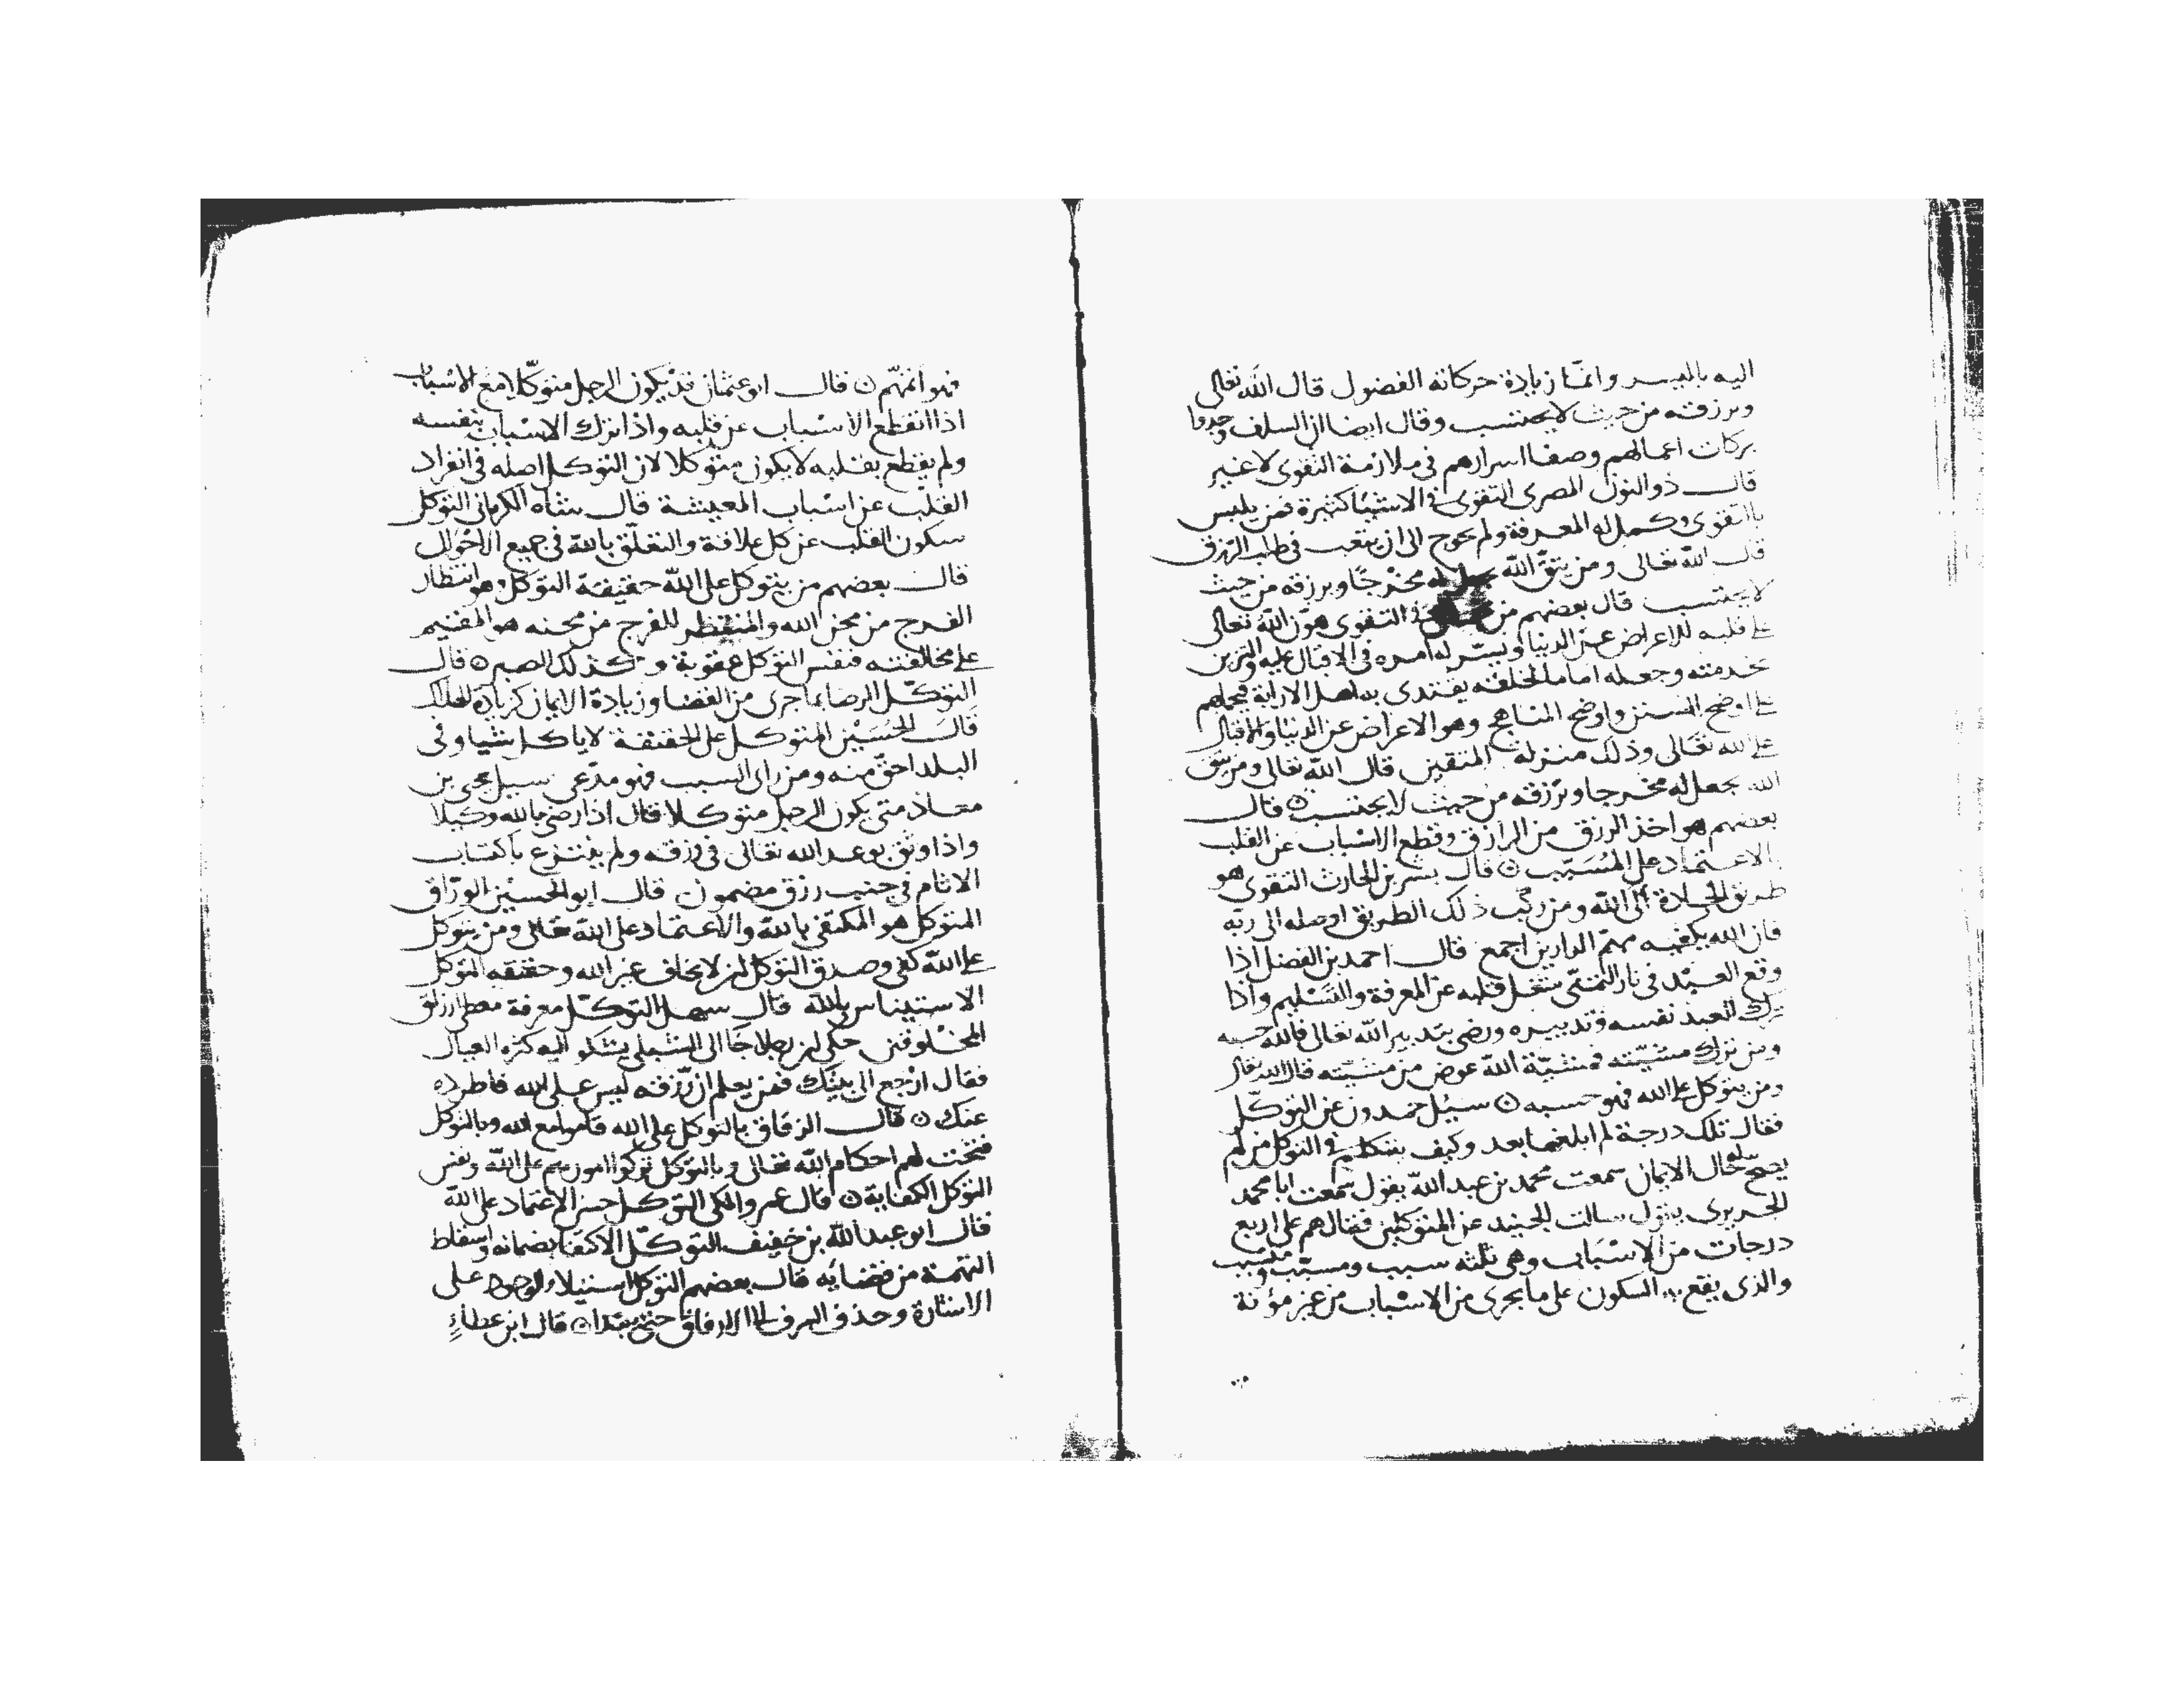 اليه باليسر وانما زيادة حركاته الفضول قال الله تعالى
ويرزقه من حيث لا يحتسب وقال ايضا ان السلف وجدوا
بركات اعمالهم وصفا اسرارهم في ملازمة التقوى لا غير
قال ذو النون المصرى التقوى في الاشيا كثيرة فمن يلبس
بالتقوى وكمل له المعرفة ولم يحوج الى ان يتعب في طلب الرزق
قال الله تعالى ومن يتق الله يجعل له مخرجا ويرزقه من حيث
لا يحتسب قال بعضهم من في التقوى هون الله تعالى
على قلبه للاعراض عن الدنيا ويسر له امره في الاقبال عليه والتزين
خدمته وجعله اماما لخلقه يقتدى به اهل الارادة فيحملهم
على اوضح السنن واوضح المناهج وهو الاعراض عن الدنيا والاقبال
على الله تعالى وذلك منزلة المتقين قال الله تعالى ومن يتق
الله يجعل له مخرجا ويرزقه من حيث لا يحتسب ۞ قال
بعضهم هو اخذ الرزق من الرازق وقطع الاسباب عن القلب
الاعتماد على المسبب ۞ قال بشر بن الحارث التقوى هو
طريق الجادة الى الله ومن ركب ذلك الطريق اوصله الى ربه
فان الله يكفيه مهم الدارين اجمع قال احمد بن الفضل اذا
وقع العبد في نار التمنى شغل قلبه عن المعرفة والتسليم واذا
ترك العبد نفسه وتدبيره ورضى بتدبير الله تعالى فالله حسبه
ومن ترك مشيته فمشية الله عوض من مشيته قال الله تعالى
ومن يتوكل على الله فهو حسبه ۞ سئل حمدون عن التوكل
فقال تلك درجة لم ابلغها بعد وكيف يتكلم في التوكل من لم
يصح له حال الايمان سمعت محمد بن عبد الله يقول سمعت ابا محمد
الجريرى يقول سالت الجنيد عن المتوكلين فقال هم على اربع
درجات من الاسباب وهي ثلثه سبب ومسبب ومتسبب
والذى يقع به السكون على ما يجرى من الاسباب من غير مؤنة
فهو اتمهم ۞ قال ابو عثمان قد يكون الرجل متوكلا مع الاسباب
اذا انقطع الاسباب عن قلبه واذا ترك الاسباب بنفسه
ولم يقطع بقلبه لا يكون متوكلا لان التوكل اصله في انفراد
القلب عن اسباب المعيشة قال شاه الكرمانى التوكل
سكون القلب عن كل علاقة والتعلق بالله في جميع الاحوال
قال بعضهم من يتوكل على الله حقيقة التوكل وهو انتظار
الفرج من محن الله والمنتظر للفرج من محنه هو المقيم
على مخالفته فنفس التوكل عقوبة وكذلك الصبر ۞ قال
التوكل الرضا بما جرى من القضا وزيادة الايمان كزيادة
قال الحسين المتوكل على الحقيقة لا ياكل شيا وفى
البلد احق منه ومن راى السبب فهو مدعى سيل يحيى بن
معاذ متى يكون الرجل متوكلا قال اذا رضى بالله وكيلا
واذا وثق بوعد الله تعالى في رزقه ولم يفتزع باكتساب
الاثام في جنب رزق مضمون قال ابو الحسين الوراق
المتوكل هو المكتفى بالله والاعتماد على الله تعالى ومن يتوكل
على الله كفى وصدق التوكل ان لا يخاف غير الله وحقيقه التوكل
الاستيناس بالله قال سهل التوكل معرفة معطى ارزاق
المخلوقين حكى ان رجلا جا الى الشبلى يشكو اليه كثرة العيال
فقال ارجع الى بيتك فمن يعلم ان رزقه ليس على الله فاطرده
عنك ۞ قال الزقاق بالتوكل على الله قاموا مع الله وبالتوكل
فتحت لهم احكام الله تعالى وبالتوكل تركوا امورهم على الله ونفس
التوكل الكفاية ۞ قال عمرو المكى التوكل حسن الاعتماد على الله
قال ابو عبد الله بن خفيف التوكل الاكتفا بضمانه واسقاط
التهمة من قضايه قال بعضهم التوكل استيلاء الوجود على
الاشارة وحذف الى الارفاق حتى ۞ قال ابن عطاء